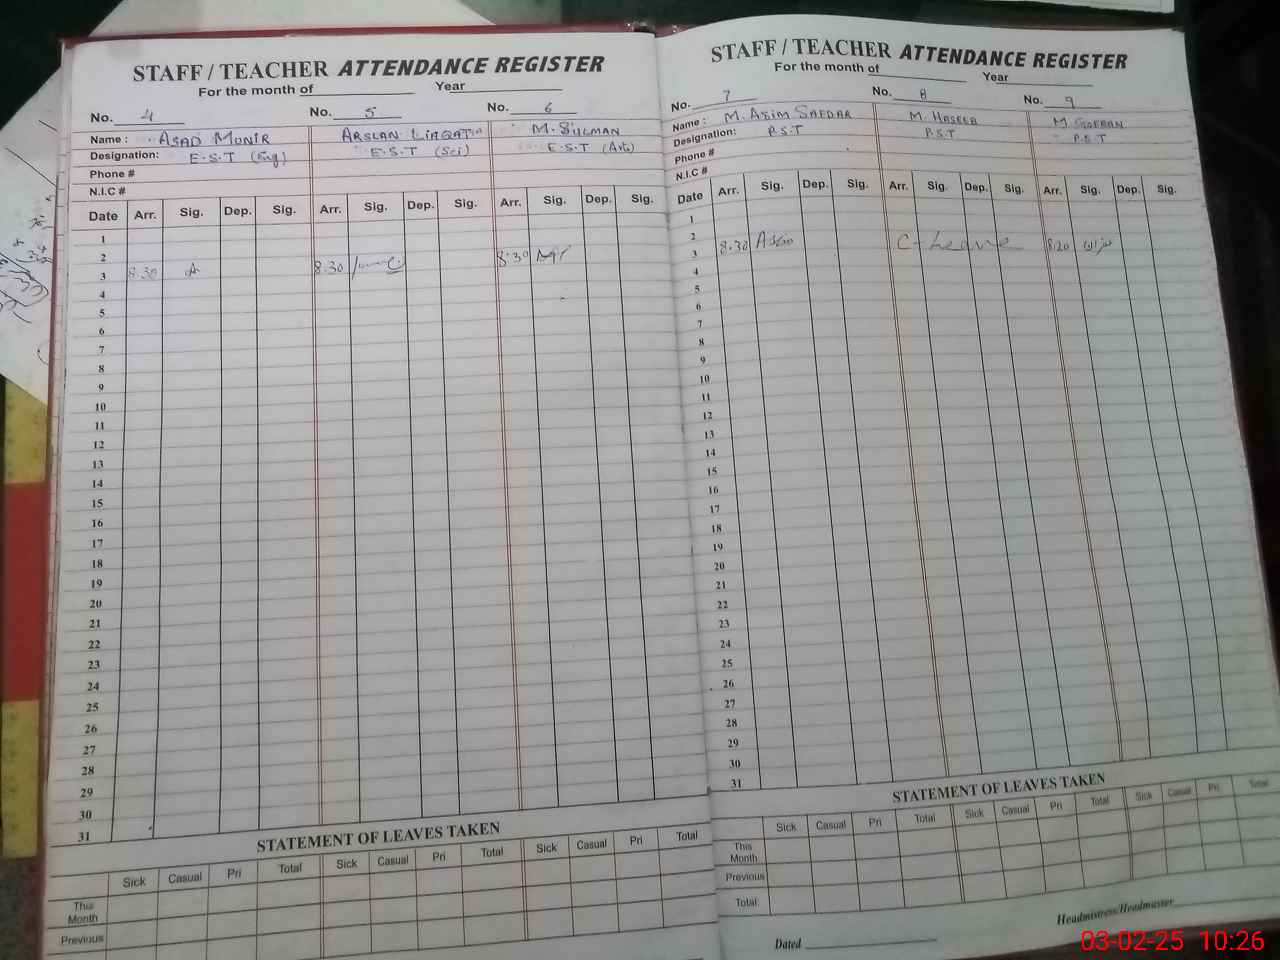 STAFF / TEACHER ATTENDANCE REGISTER
For the month of Year
No. 4 No. 5 No. 6
Name : ASAD MUNIR ARSLAN LIAQAT M. SULMAN
Designation: E.S.T (Eng) E.S.T (Sci) E.S.T (Arts)
Phone #
N.I.C #
Date Arr. Sig. Dep. Sig. Arr. Sig. Dep. Sig. Arr. Sig. Dep. Sig.
1
2
3 8.30 A 8.30 8:30
4
5
6
7
8
9
10
11
12
13
14
15
16
17
18
19
20
21
22
23
24
25
26
27
28
29
30
31
STATEMENT OF LEAVES TAKEN
Sick Casual Pri Total Sick Casual Pri Total Sick Casual Pri Total
This Month
Previous
STAFF / TEACHER ATTENDANCE REGISTER
For the month of Year
No. 7 No. 8 No. 9
Name : M. ASIM SAFDAR M. HASEEB M.
Designation: P.S.T P.S.T P.S.T
Phone #
N.I.C #
Date Arr. Sig. Dep. Sig. Arr. Sig. Dep. Sig. Arr. Sig. Dep. Sig.
1
2
3 8.30 C-Leave 8:20
4
5
6
7
8
9
10
11
12
13
14
15
16
17
18
19
20
21
22
23
24
25
26
27
28
29
30
31
STATEMENT OF LEAVES TAKEN
Sick Casual Pri Total Sick Casual Pri Total Sick Casual Pri Total
This Month
Previous
Total:
Dated Headmistress/Headmaster
03-02-25 10:26